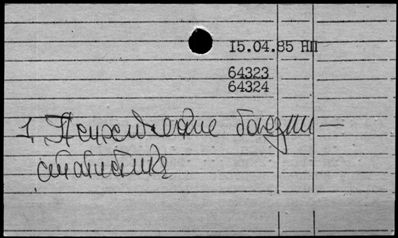 15.04.85 НП
64323
64324
1. Психические болезни —
статистика